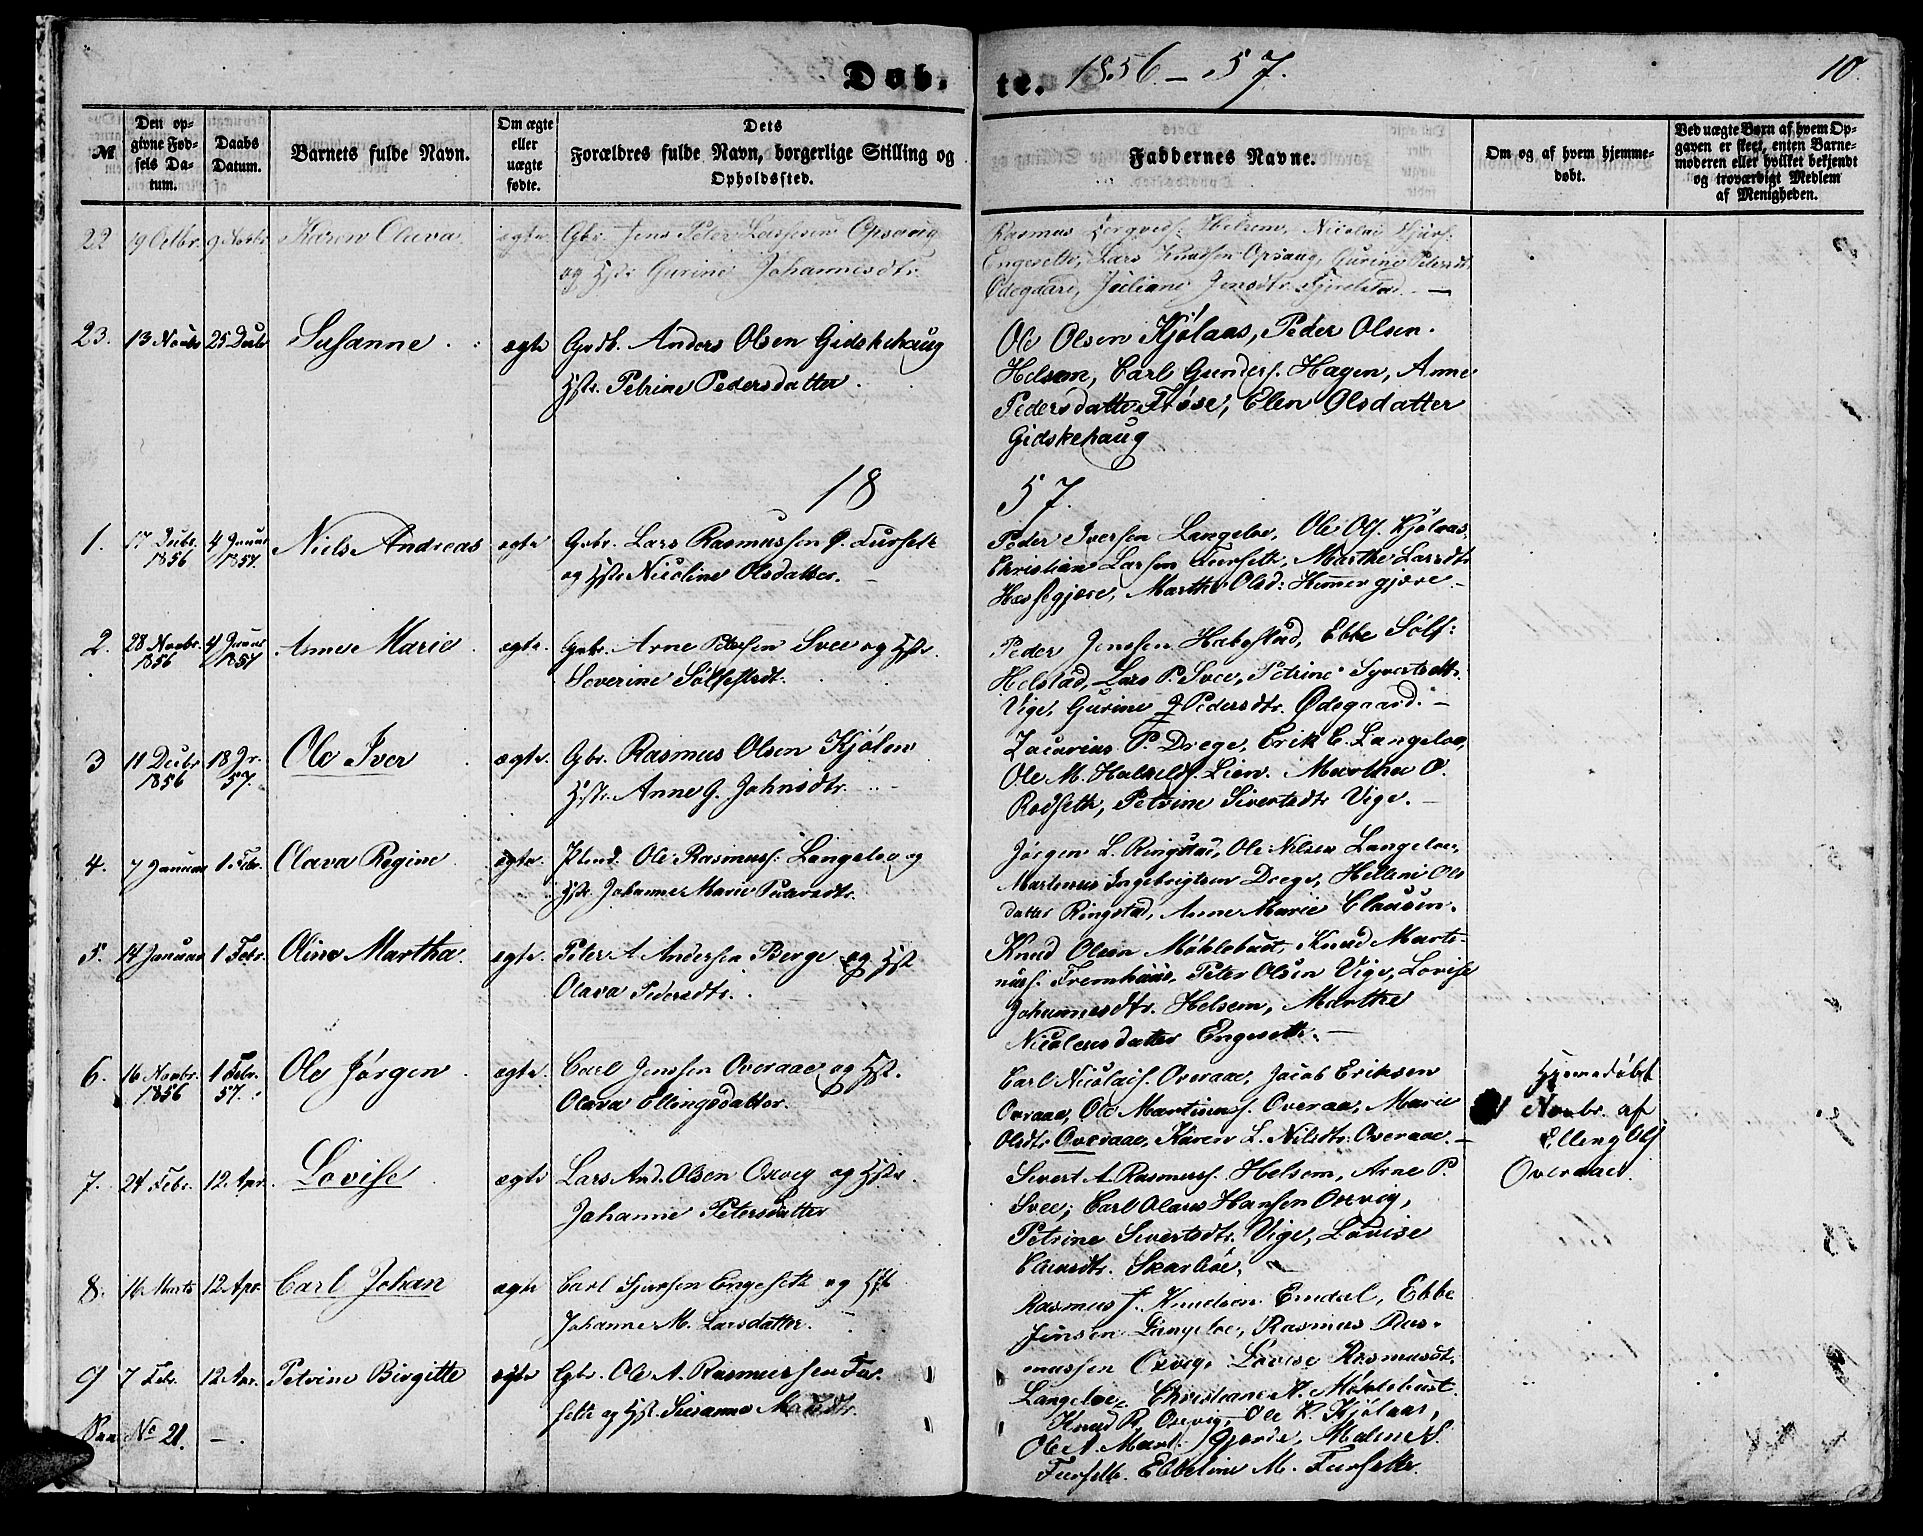 Døb. te. 1856-57. 10.
№
Den opgivne Fødsels Datum.
Daabs Datum.
Barnets fulde Navn.
Om ægte eller uægte fødte.
Dets
Forældres fulde Navn, borgerlige Stilling og
Opholdssted.
Faddernes Navne.
Om og af hvem hjemmedøbt.
Ved uægte Børn af hvem Opgaven er skeet, enten Barnemoderen eller hvilket bekjendt og troværdigt Medlem af Menigheden.
22 19 Octbr. 9 Novbr. Karen Olava ægte Gbr. Jens Peter Opsaug
og Hstr. Gurine Johannesdtr.
Rasmus Helsem, Nicolai
Engeseth, Lars Knudsen Opsaug, Gurine Petersdtr.
Ødegaard, Juliane Jensdtr. —
23. 13 Novbr 25 Decbr Susanne ægte Grdb. Anders Olsen Gidskehaug
Hstr. Petrine Pedersdatter.
Ole Olsen Kjølaas, Peder Olsen
Helsem, Carl Gunders. Hagen, Anne
Pedersdatter Frøse, Elen Olsdatter
Gidskehaug
18 57.
1. 17 Decbr. 1856 4 Januar 1857. Niels Andreas ægte Gbr. Lars Rasmussen Ø. Furseth
og Hstr Nicoline Olsdatter. —
Peder Iversen Langeloe, Ole Ols. Kjølaas,
Christian Larsen Furseth, Marthe Larsdtr
Hessegjære, Marthe Olsd: Hemmergjære —
2. 28 Novbr. 1856 4 Januar 1857 Anne Marie ægte. Gbr. Arne Petersen Svee og Hstr.
Severine Sølfestdt.
Peder Jenssen Habostad, Ebbe Sølf:
Helstad, Lars P. Svee, Petrine Syvertsdtr.
Vige, Gurine J Pedersdtr. Ødegaard. —
3 11 Decbr 1856 18 Jr. 57. Ole Iver ægte. Gbr. Rasmus Olsen Kjølen
Hstr. Anne G. Johnsdtr.
Zacarius P. Drege, Erik E. Langeloe,
Ole M. Lien. Martha O.
Rødseth, Petrine Sivertsdtr Vige. —
4. 7 Januar 1 Febr. Olava Regine ægte. Ole Rasmuss. Langeloe og
Hstr. Johanne Marie Pedersdtr.
Jørgen L. Ringstad, Ole Nilsen Langeloe,
Martinus Ingebrigtsen Drege, Helline Ols
datter Ringstad, Anne Marie Clausen.
5. 14 Januar 1 Febr. Oline Martha ægte. Peter A Andersen Berge og Hst
Olava Pedersdtr.
Knud Olsen Møklebust, Knud Marti-
nuss. Fremhuus, Peter Olsen Vige, Lovise
Johannesdtr. Helsem, Marthe
Nicolensdatter Engeseth. —
6. 16 Novbr. 1856 1 Febr. 57. Ole Jørgen ægte. Carl Jensen Overaae og Hst.
Olava Ellingsdatter.
Carl Nicolais. Overaae, Jacob Eriksen
Overaae, Ole Martinuss. Overaa, Marie
Olsdtr Overaae, Karen L. Nilsdtr. Overaae. —
Hjemedøbt
Novbr. af
Elling Ols
Overaae.
7. 24 Febr. 12 Apr. Lovise ægte Lars And. Olsen Oxvig og Hstr.
Johanne Petersdatter
Sivert A Rasmuss. Helsem, Arne P.
Svee, Carl Olaus Hansen Oxevig,
Petrine Sivertsdtr. Vige, Lovise
Skarbøe, —
8. 16 Marts 12 Apr. Carl Johan ægte Carl Sjursen Engeseth og Hst
Johanne M. Larsdatter. —
Rasmus J. Knudsen Emdal, Ebbe
Jensen Langeloe, Rasmus Ras-
mussen Oxvig, Lovise Rasmusdt.
Langeloe, Christiane N. Møklebust.
9 7 Febr. 12 Apr. Petrine Birgitte ægte Gbr. Ole A. Rasmussen Fur-
seth og Hst. Susanne
Knud R. Oxevig, Ole K. Kjølaas,
Ole A. Mart. Gjerde, Malene S.
Furseth. Ebbeline M. Furseth.
No 21. —